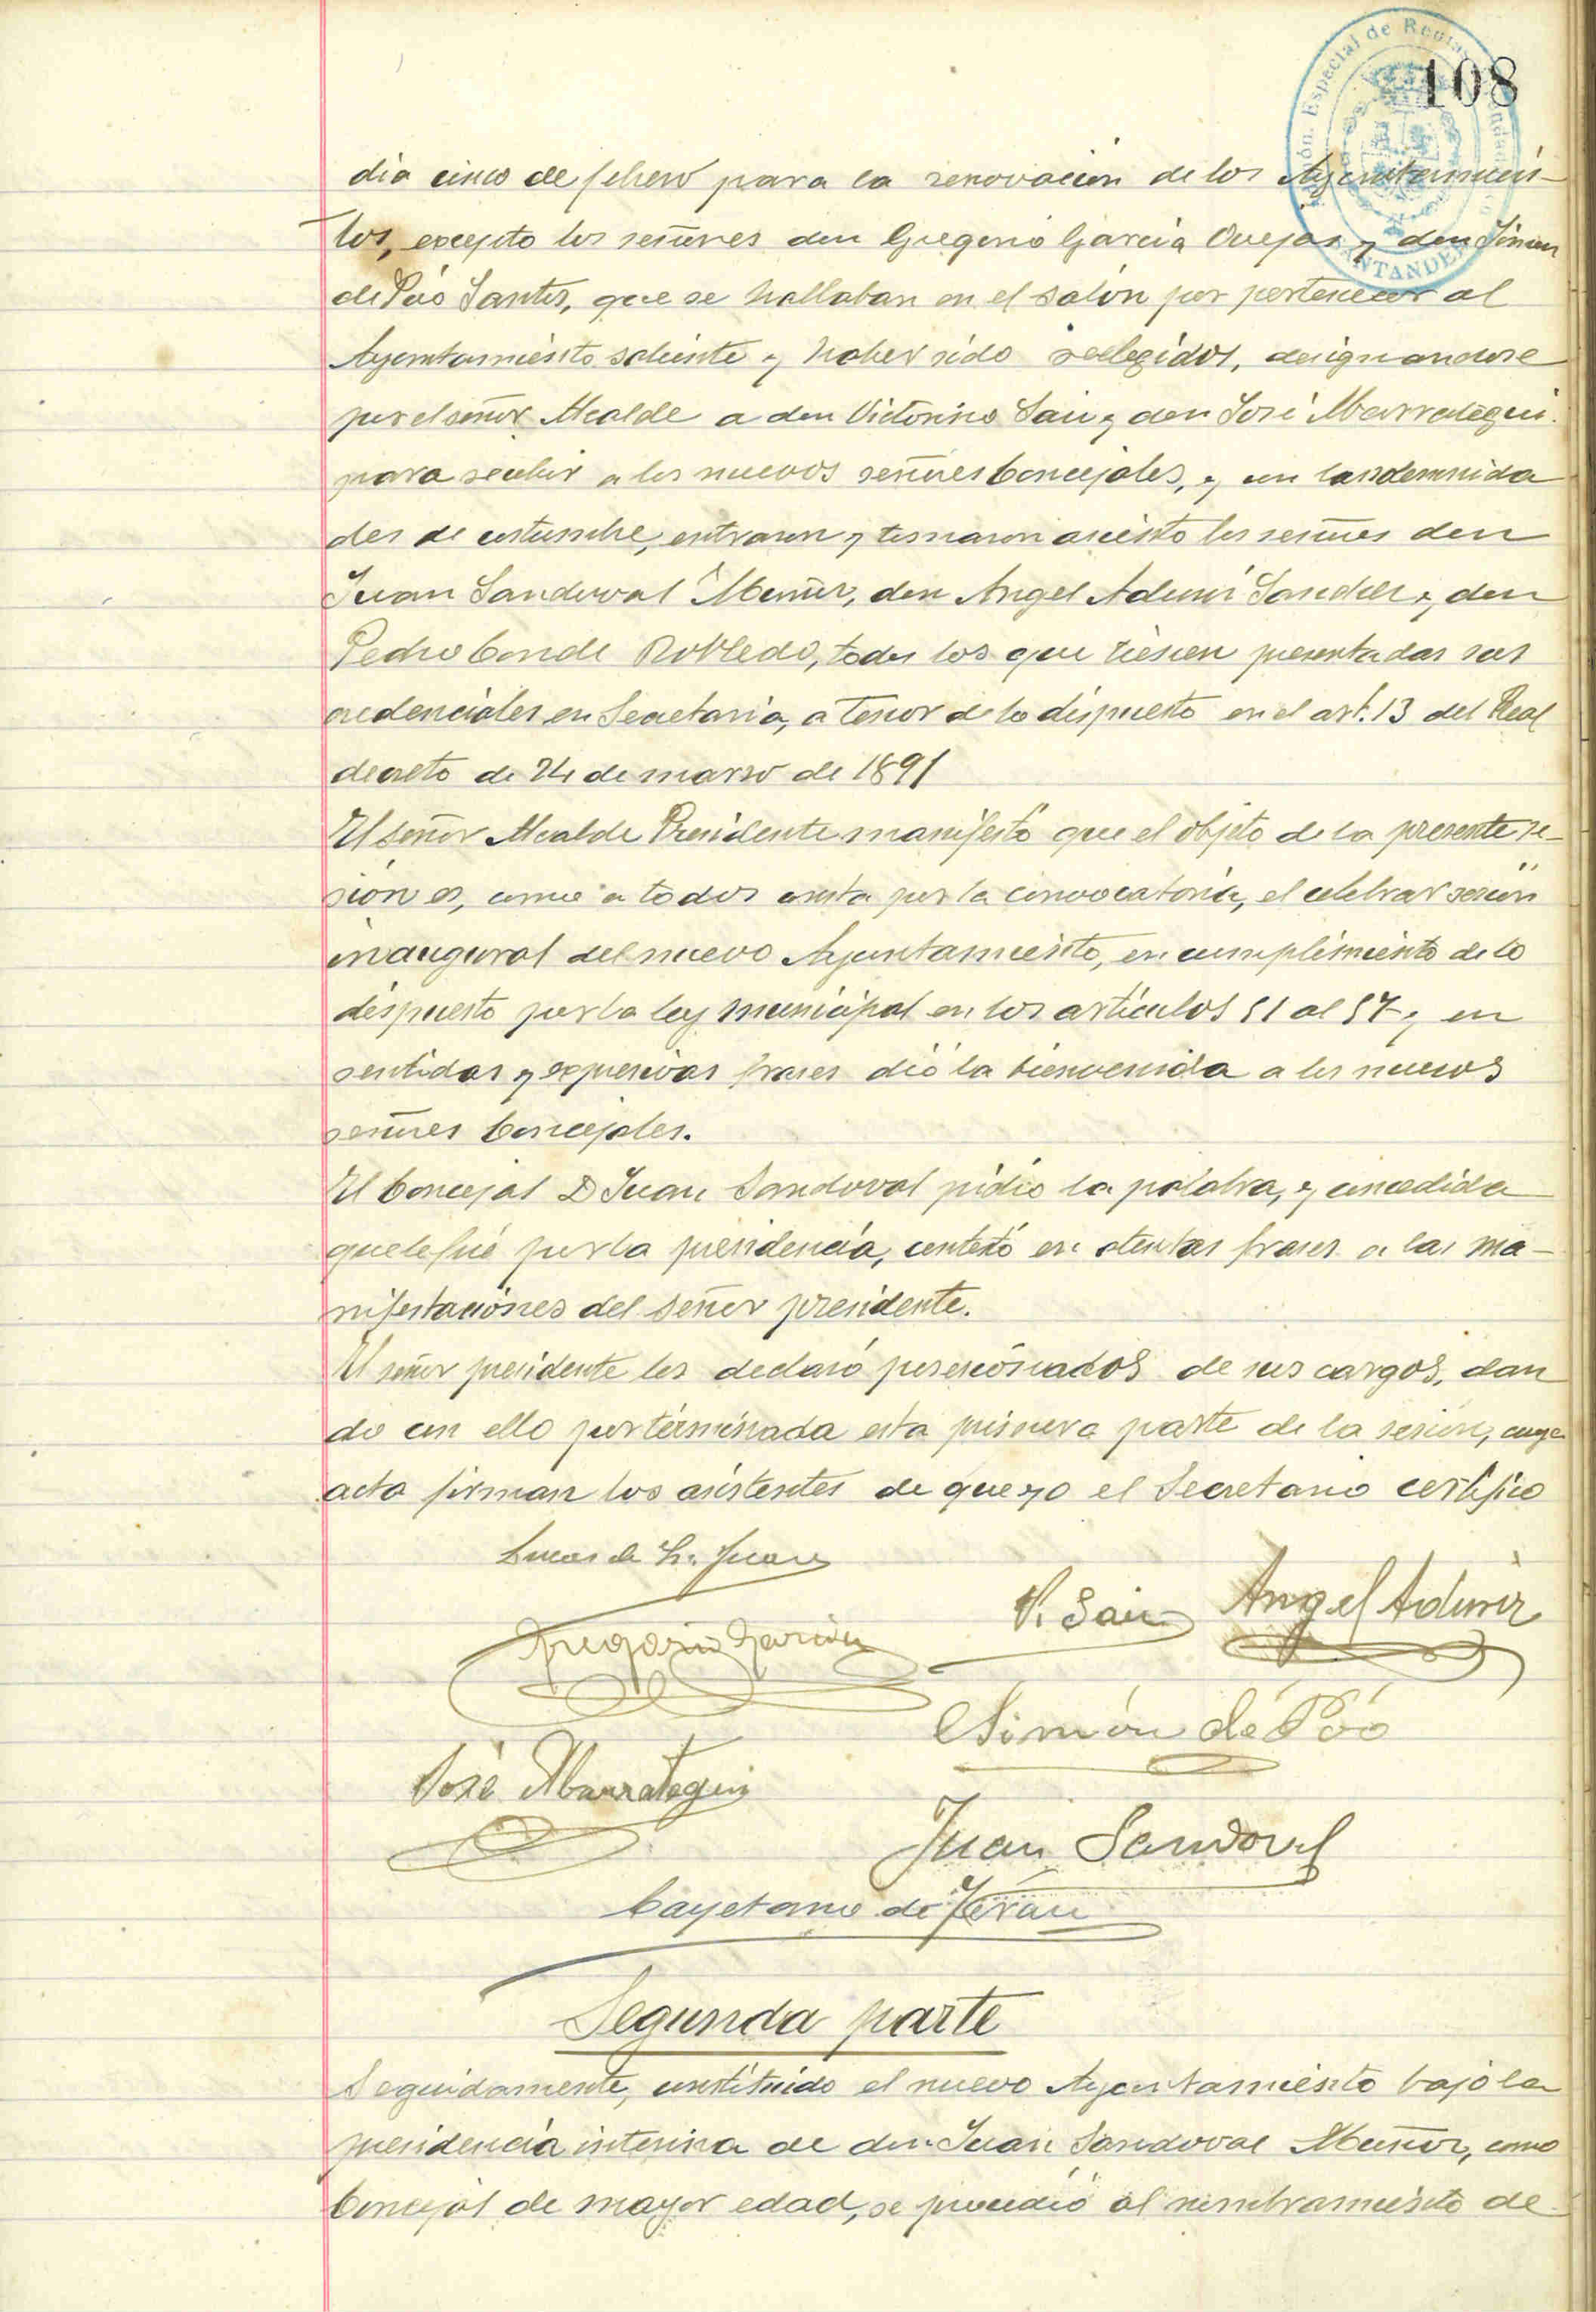 108
dia cinco de febrero para la renovación de los Ayuntamien-
tos, excepto los señores don Gregorio García Cuejas y don Simon
de Póo Santos, que se hallaban en el salón por pertenecer al
Ayuntamiento saliente y haber sido reelegidos, designandose
por el señor Alcalde a don Victorino Saiz y don José Abarrategui
para recibir a los nuevos señores Concejales, y con las solemnida
des de costumbre, entraron y tomaron asiento los señores don
Juan Sandoval Muñoz, don Angel Aduriz Sanchez y don
Pedro Conde Robledo, todos los que tienen presentadas sus
credenciales en Secretaria, a tenor de lo dispuesto en el art. 13 del Real
decreto de 24 de marzo de 1891
El señor Alcalde Presidente manifestó que el objeto de la presente se-
sión es, como a todos consta por la convocatoria, el celebrar sesión
inaugural del nuevo Ayuntamiento, en cumplimiento de lo
dispuesto por la ley municipal en los artículos 51 al 57 y en
sentidas y expresivas frases dió la bienvenida a los nuevos
señores Concejales.
El Concejal D Juan Sandoval pidió la palabra, y concedida
que le fué por la presidencia, contestó en atentas frases a las ma-
nifestaciones del señor presidente.
El señor presidente les declaró posesionados de sus cargos, dan
do con ello por terminada esta primera parte de la sesión, cuya
acta firman los asistentes de que yo el Secretario certifico
Lucas de
V. Saiz Angel Aduriz
Gregorio García
Simón de Póo
José Abarrategui
Juan Sandoval
Cayetano de Terán
Segunda parte
Seguidamente, constituido el nuevo Ayuntamiento bajo la
presidencia interina de don Juan Sandoval Muñoz, como
Concejal de mayor edad, se procedió al nombramiento de